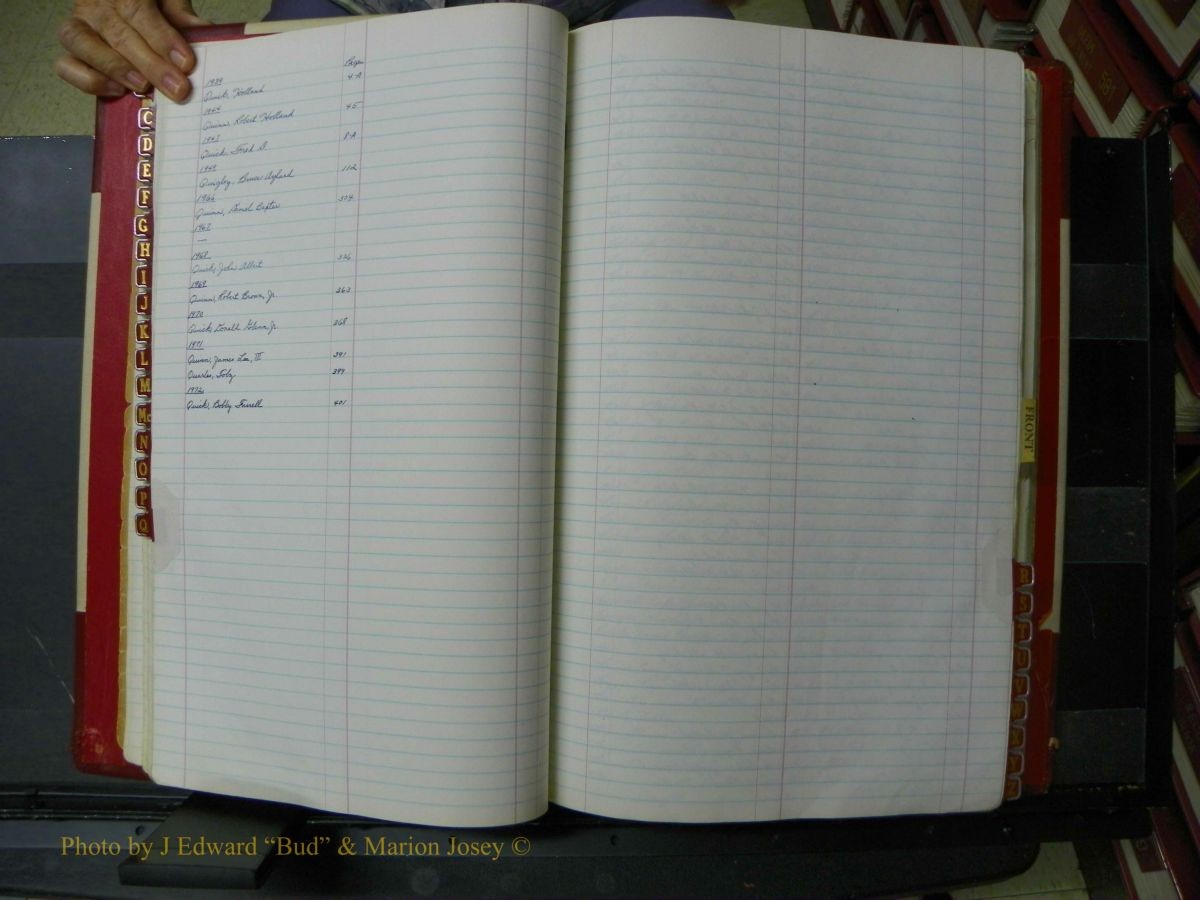 Pages
1939
Quick, Holland
4-A
1944
Quinn, Robert Holland
45
1947
Quick, Fred D
8-A
1949
Quigley, Bruce
112
1966
Quinn, Baxter
304
1967
—
1968
Quick, John Albert
336
1969
Quinn, Robert Brown, Jr.
363
1970
Quick, Glenn, Jr.
368
1971
Quinn, James Lee, III
391
Quarles, Toby
399
1972
Quick, Bobby
401
C
D
E
F
G
H
I
J
K
L
M
Mc
N
O
P
Q
FRONT
R
S
T
U
591
Photo by J Edward “Bud” & Marion Josey ©